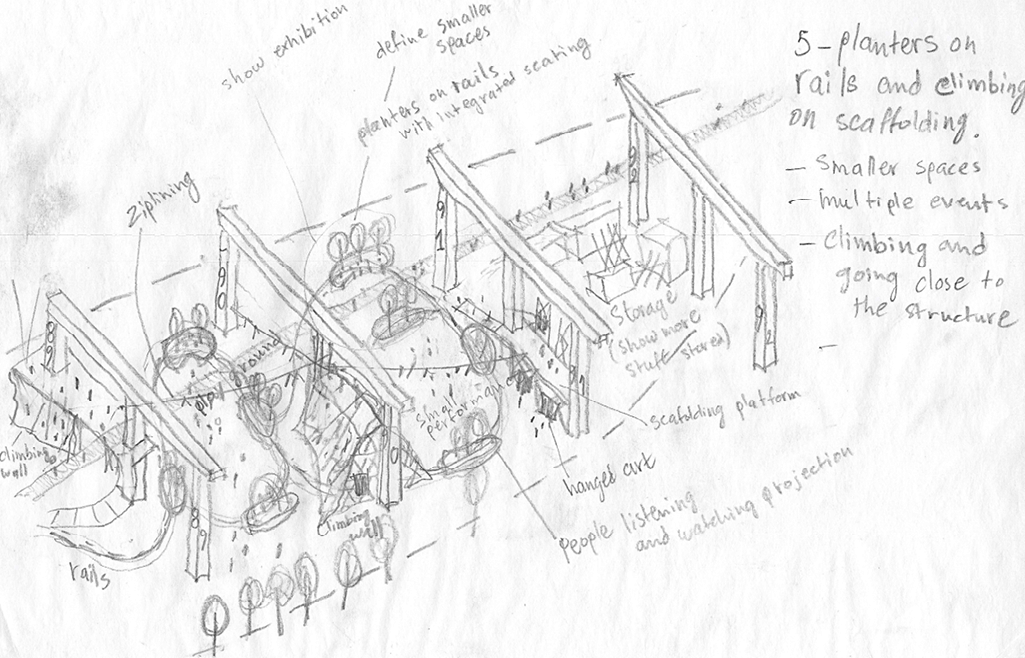 show exhibition
define smaller
spaces
planters on rails
with integrated seating
ziplining
5 - planters on
rails and climbing
on scaffolding.
- Smaller spaces
- multiple events
- climbing and
going close to
the structure
-
89
90
91
92
Storage
(show more
stuff stored)
playground
small
performance
climbing
wall
climbing
wall
scafolding platform
hanged art
People listening
and watching projection
rails
89
90
91
92